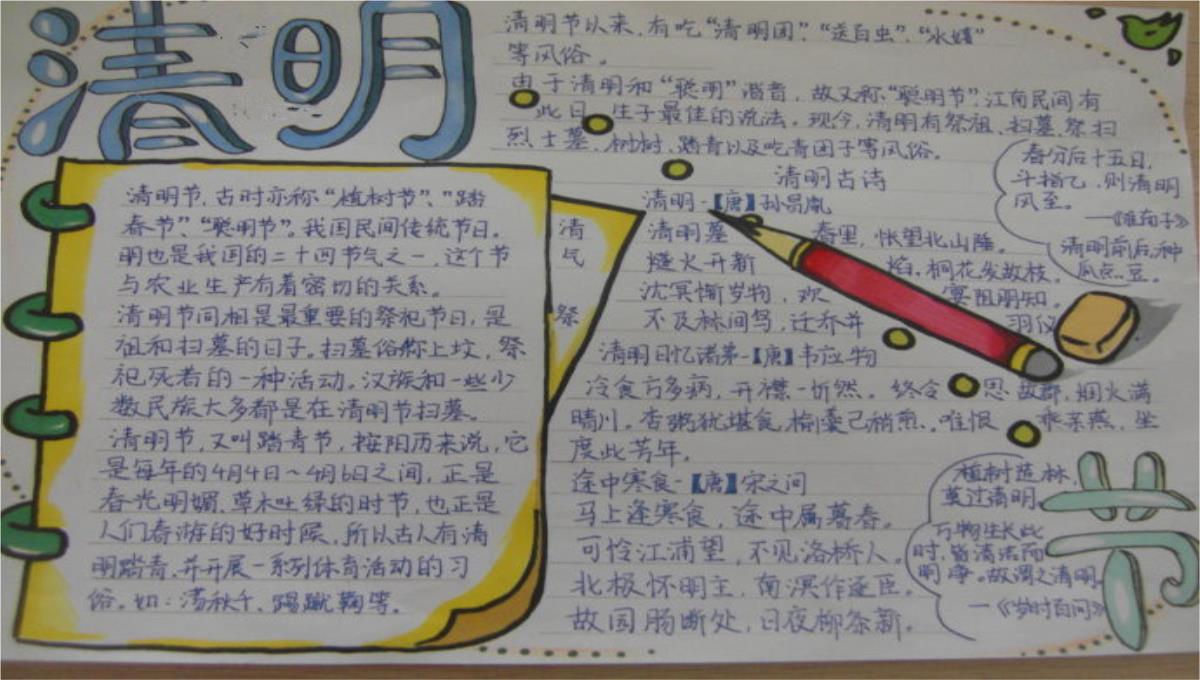 清明
清明节，古时亦称“植树节”、“踏
春节”、“聪明节”。我国民间传统节日。
明也是我国的二十四节气之一，这个节
与农业生产有着密切的关系。
清明节间相是最重要的祭祀节日，是
祖和扫墓的日子。扫墓俗称上坟，祭
祀死者的一种活动。汉族和一些少
数民族大多都是在清明节扫墓。
清明节，又叫踏青节，按阳历来说，它
是每年的4月4日～4月6日之间，正是
春光明媚、草木吐绿的时节，也正是
人们春游的好时候，所以古人有清
明踏青、并开展一系列体育活动的习
俗。如：荡秋千、踢蹴鞠等。
清
气
祭
清明节以来，有吃“清明团”、“送百虫”、“水嬉”
等风俗。
由于清明和“聪明”谐音，故又称“聪明节”，江南民间有
此日生子最佳的说法。现今，清明有祭祖、扫墓、祭扫
烈士墓、树树、踏青以及吃青团子等风俗。
清明古诗
清明-【唐】孙昌胤
清明墓春里，怅望北山陲。
燧火开新焰，桐花发故枝。
沈冥惭岁物，欢宴阻朋知。
不及林间鸟，迁乔并羽仪
清明日忆诸弟-【唐】韦应物
冷食方多病，开襟一忻然。终令思故郡，烟火满
晴川。杏粥犹堪食，榆羹已稍煎。唯恨乖亲燕，坐
度此芳年。
途中寒食-【唐】宋之问
马上逢寒食，途中属暮春。
可怜江浦望，不见洛桥人。
北极怀明主，南溟作逐臣。
故园肠断处，日夜柳条新。
春分后十五日，
斗指乙，则清明
风至。
—《淮南子》
清明前后，种
瓜点豆。
植树造林，
莫过清明。
万物生长此
时，皆清洁而
明净。故谓之清明。
—《岁时百问》
节